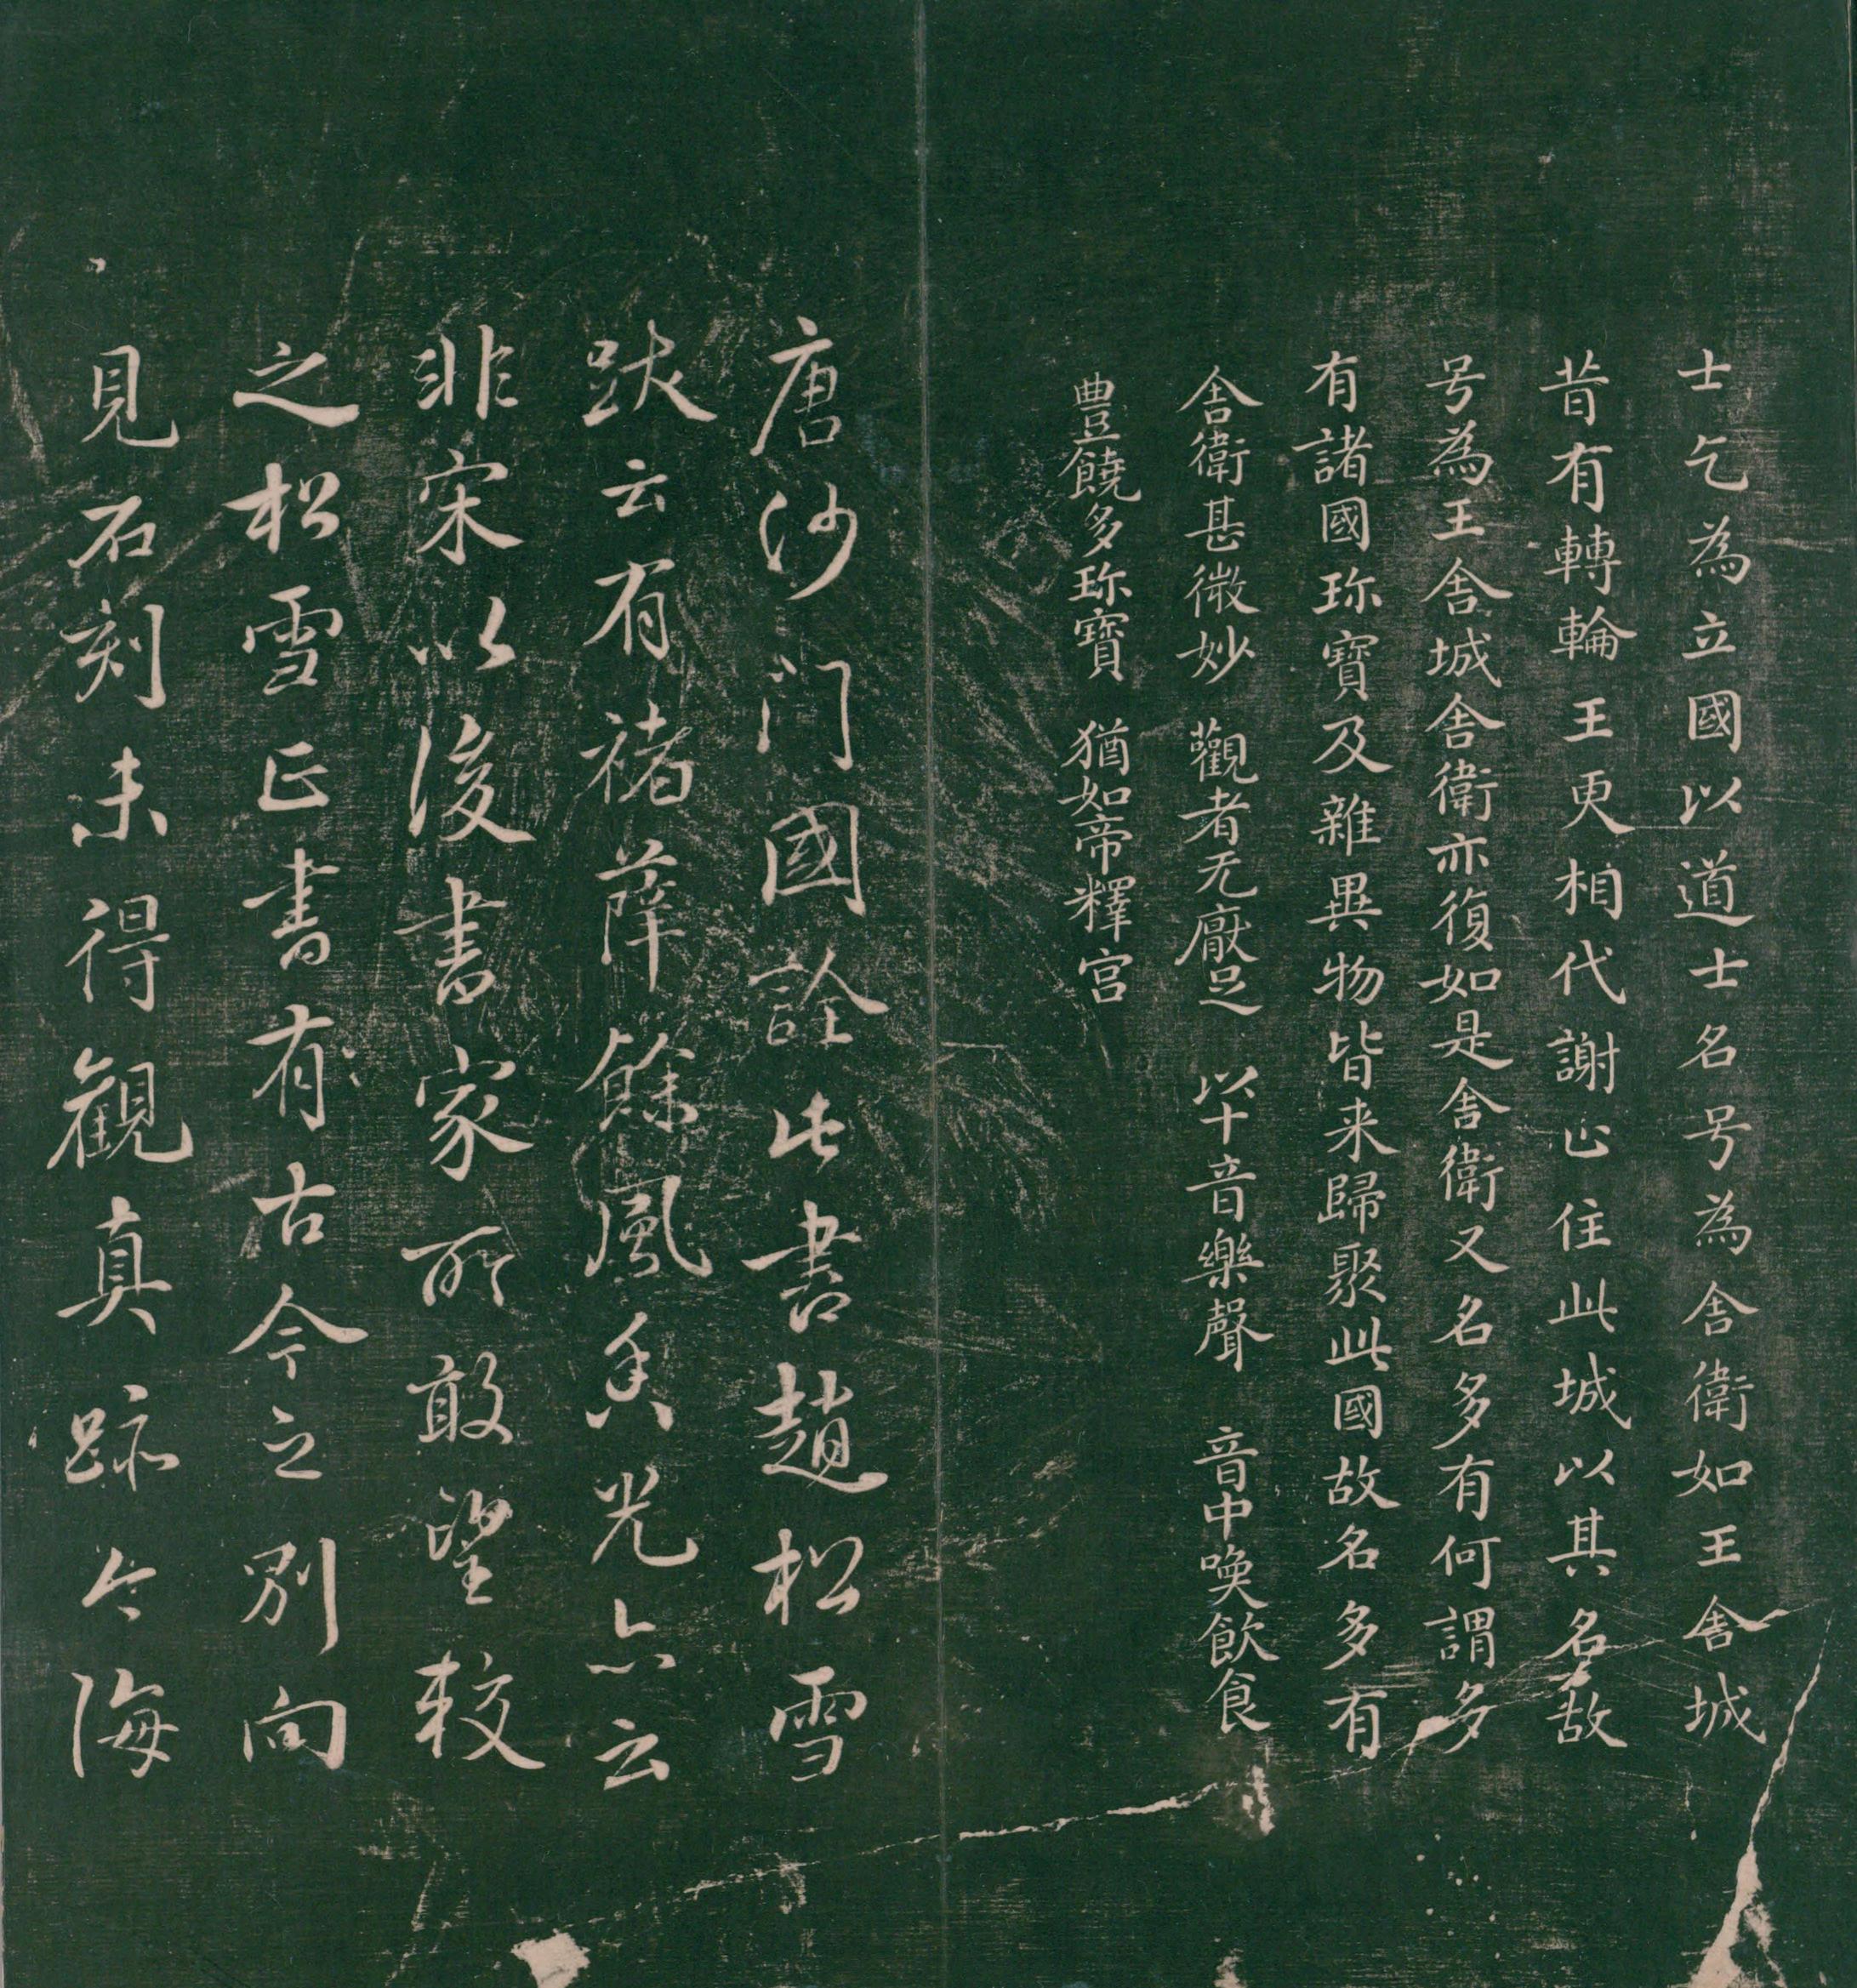 士乞為立國以道士名号為舍衛如王舍城
昔有轉輪王更相代謝止住此城以其名故
号為王舍城舍衛亦復如是舍衛又名多有何謂多
有諸國珎寶及雜異物皆来歸聚此國故名多有
舍衛甚微妙 觀者无厭足 以十音樂聲 音中喚飲食
豊饒多珎寶 猶如帝釋宮
唐沙门國詮此書趙松雪
跋云有褚薛餘風香光亦云
非宋以後書家所敢望較
之松雪正書有古今之別向
見石刻未得觀真跡今海